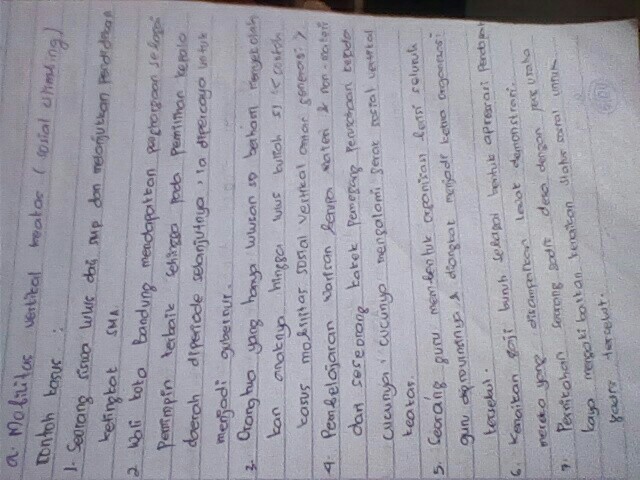 a. Mobilitas vertikal keatas (sosial climbing)
Contoh kasus :
1. Seorang siswa lulus dari SMP dan melanjutkan Pendidikan
ketingkat SMA.
2. Wali kota Bandung mendapatkan penghargaan sebagai
Pemimpin terbaik sehingga pada pemilihan kepala
daerah diperiode selanjutnya, ia dipercaya untuk
menjadi gubernur.
3. Orangtua yang hanya lulusan SD berhasil menyekolah
kan anaknya hingga lulus kuliah S1 (contoh
kasus mobilitas sosial vertikal antar generasi)
4. Pembelajaran warisan berupa materi & non-materi
dari seseorang kakek pemegang perusahaan kepada
cucunya, cucunya mengalami gerak sosial vertikal
keatas.
5. Seorang guru membentuk organisasi berisi seluruh
guru diprovinsinya & diangkat menjadi ketua organisasi
tersebut.
6. Kenaikan gaji buruh sebagai bentuk apresiasi pendapat
mereka yang disampaikan lewat demonstrasi.
7. Pernikahan seorang gadis desa dengan pengusaha
kaya mengakibatkan kenaikan status sosial untuk
gadis tersebut.